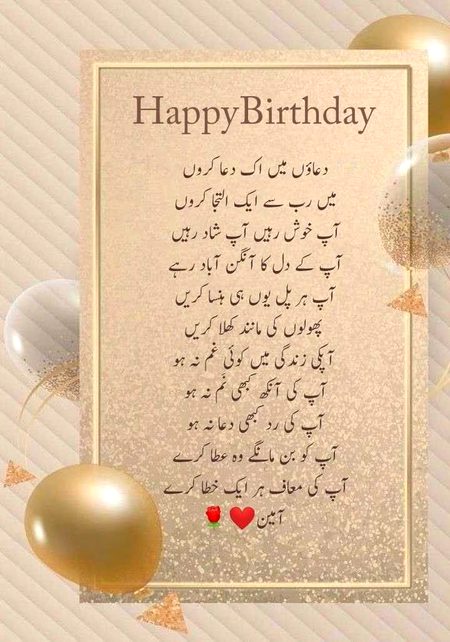 HappyBirthday
دعاؤں میں اک دعا کروں
میں رب سے ایک التجا کروں
آپ خوش رہیں آپ شاد رہیں
آپ کے دل کا آنگن آباد رہے
آپ ہر پل یوں ہی ہنسا کریں
پھولوں کی مانند کھلا کریں
آپکی زندگی میں کوئی غم نہ ہو
آپ کی آنکھ کبھی نَم نہ ہو
آپ کی رد کبھی دعا نہ ہو
آپ کو بن مانگے وہ عطا کرے
آپ کی معاف ہر ایک خطا کرے
آمین❤️🌹